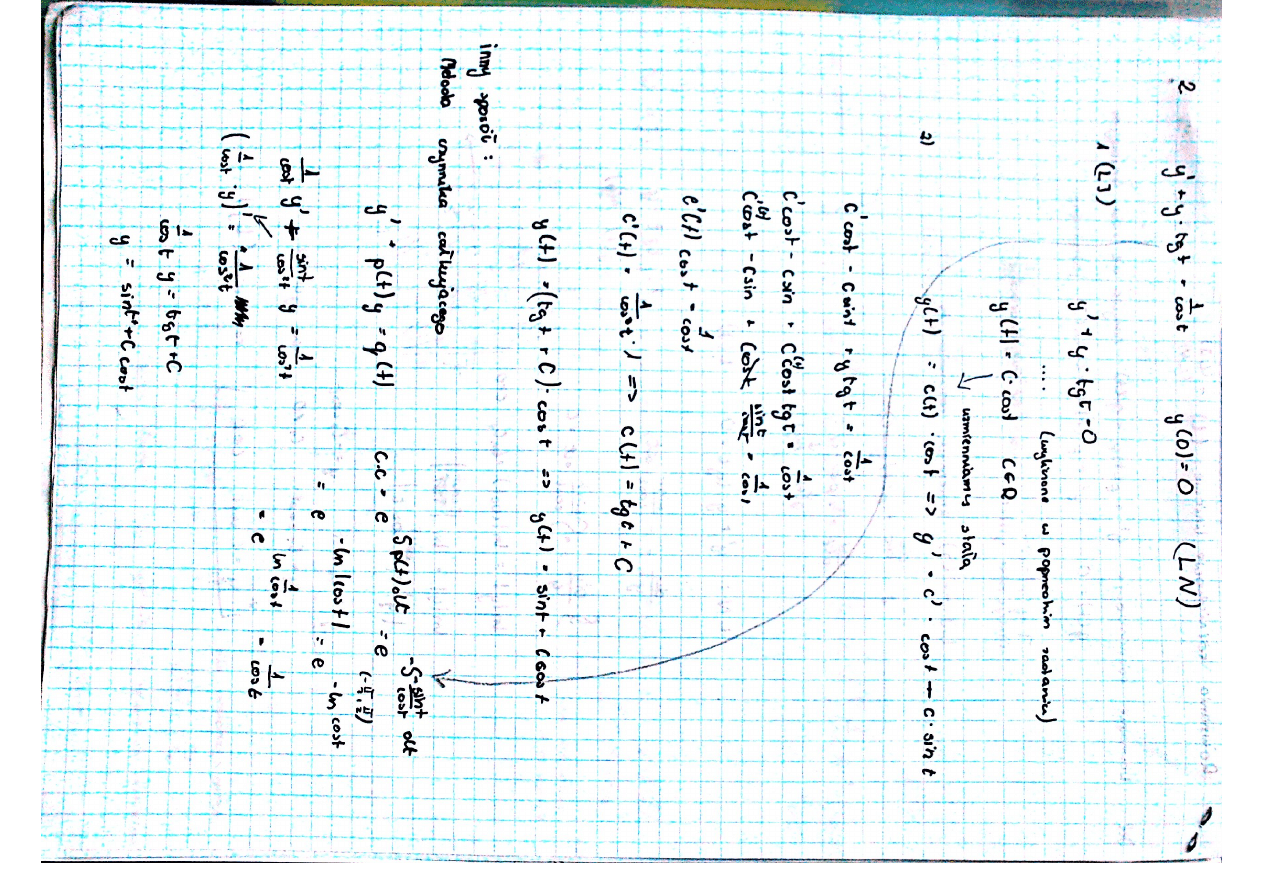 2 y' + y · tg t = 1/cos t y(0) = 0 (LN)
1 (LJ)
y' + y · tgt = 0
.... (wyliczone w poprzednim zadaniu)
y(t) = C · cost C∈R
↓ uzmienniamy stałą
2) y(t) = c(t) · cos t => y' = c' · cos t - c · sin t
C' cost - C sint + y tg t = 1/cost
C' cost - c sin + C(t) cost tgt = 1/cost
C'(t) cost - C sin + C cost sint/cost = 1/cost
C'(t) cos t = 1/cost
C'(t) = 1/cos²t => C(t) = tgt + C
y(t) = (tg t + C) · cos t => y(t) = sint + C cos t
inny sposób :
Metoda czynnika całkującego
y' + p(t) y = q(t) C.C = e ∫p(t)dt = e -∫ -sint/cost dt
(-π/2, π/2)
1/cost y' + sint/cos²t y = 1/cos²t = e -ln|cost| = e -ln cost
(1/cost · y)' = 1/cos²t = e ln 1/cost = 1/cos t
1/cos t y = tg t + C
y = sint + C cost